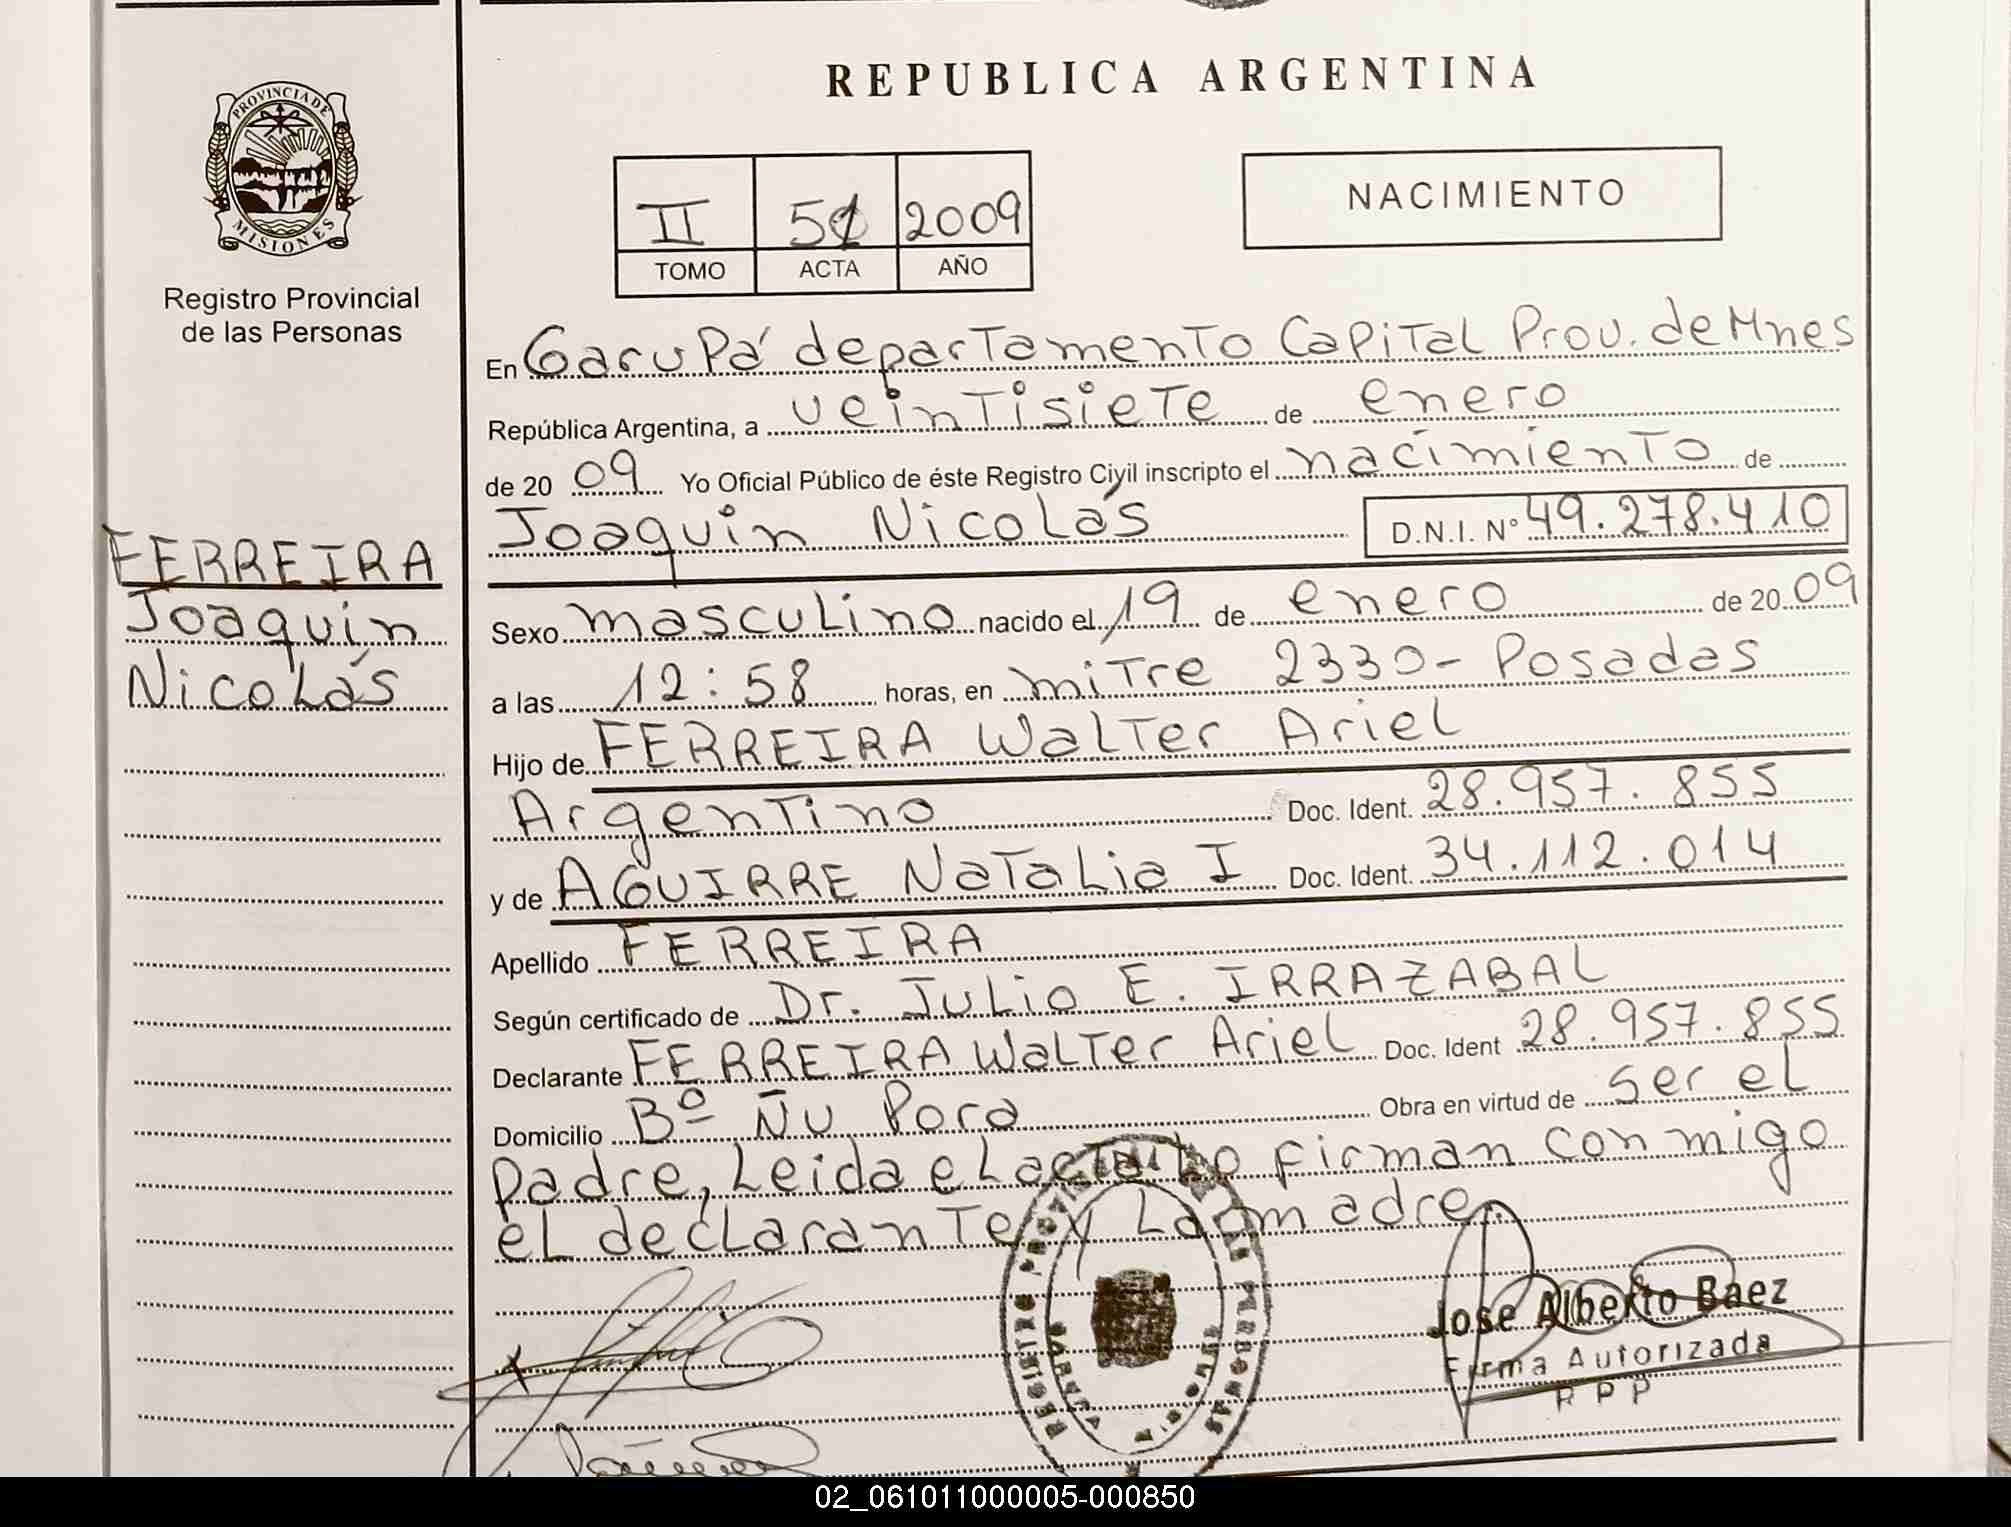 REPUBLICA ARGENTINA
PROVINCIA DE
MISIONES
Registro Provincial
de las Personas
II 2009 NACIMIENTO
TOMO ACTA AÑO
En Garupá departamento Capital Prov. de Mnes
República Argentina, a veintisiete de enero
de 20 09 Yo Oficial Público de éste Registro Civil inscripto el nacimiento de
Joaquín Nicolás D.N.I. Nº 49.278.410
FERREIRA
Joaquín
Nicolás
Sexo masculino nacido el 19 de enero de 20 09
a las 12:58 horas, en mitre 2330- Posadas
Hijo de FERREIRA Walter Ariel
Argentino Doc. Ident. 28.957.855
y de AGUIRRE Natalia I Doc. Ident. 34.112.014
Apellido FERREIRA
Según certificado de Dr. Julio E. IRRAZABAL
Declarante FERREIRA Walter Ariel Doc. Ident 28.957.855
Domicilio Bº Ñu Pora Obra en virtud de ser el
padre, Leida el acta lo firman conmigo
el declarante y La madre.
Jose Alberto Baez
Firma Autorizada
R P P
02_061011000005-000850